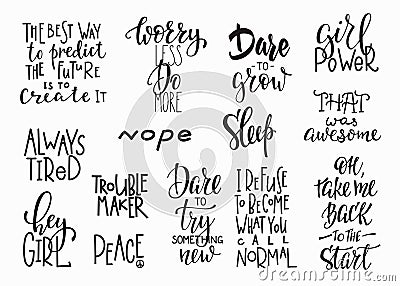 THE BEST WAY
to predict
THE FUTURE
is to
create IT
Worry
LESS
Do
MORE
Dare
TO
grow
girl
POWER
THAT
was
awesome
ALWAYS
TIRED
nope
Sleep
hey
GIRL
TROUBLE
MAKER
PEACE
Dare
TO
try
SOMETHING
new
I REFUSE
TO BECOME
WHAT YOU
CALL
NORMAL
OH,
take me
BACK
TO THE
Start